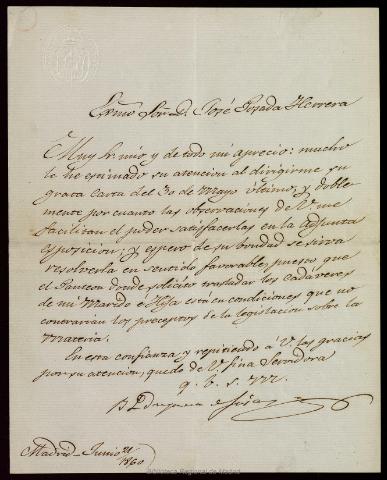 Exmo Sor. D. José Posada Herrera
Muy Sr. mio y de todo mi aprecio: mucho
le he estimado su atencion al dirigirme su
grata carta del 30 de Mayo último, y doble-
mente por cuanto las observaciones de V. me
facilitan el poder satisfacerlas en la adjunta
esposicion; y espero de su bondad se sirva
resolverla en sentido favorable, puesto que
el Panteon donde solicito trasladar los cadáveres
de mi Marido e Hija está en condiciones que no
contrarian los preceptos de la legislacion sobre la
materia.
En esta confianza, y repitiendo á V. las gracias
por su atencion, quedo de V. fina Servidora
q. b. s. m.
Madrid Junio 21
1860
Biblioteca Regional de Madrid